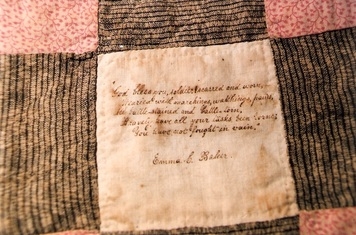 "God bless you, soldier, scarred and worn,
Wearied with marchings, watchings, pain,
All battle-stained and battle-torn,
Bravely have all your tasks been borne,
You have not fought in vain."
Emma C. Baker.